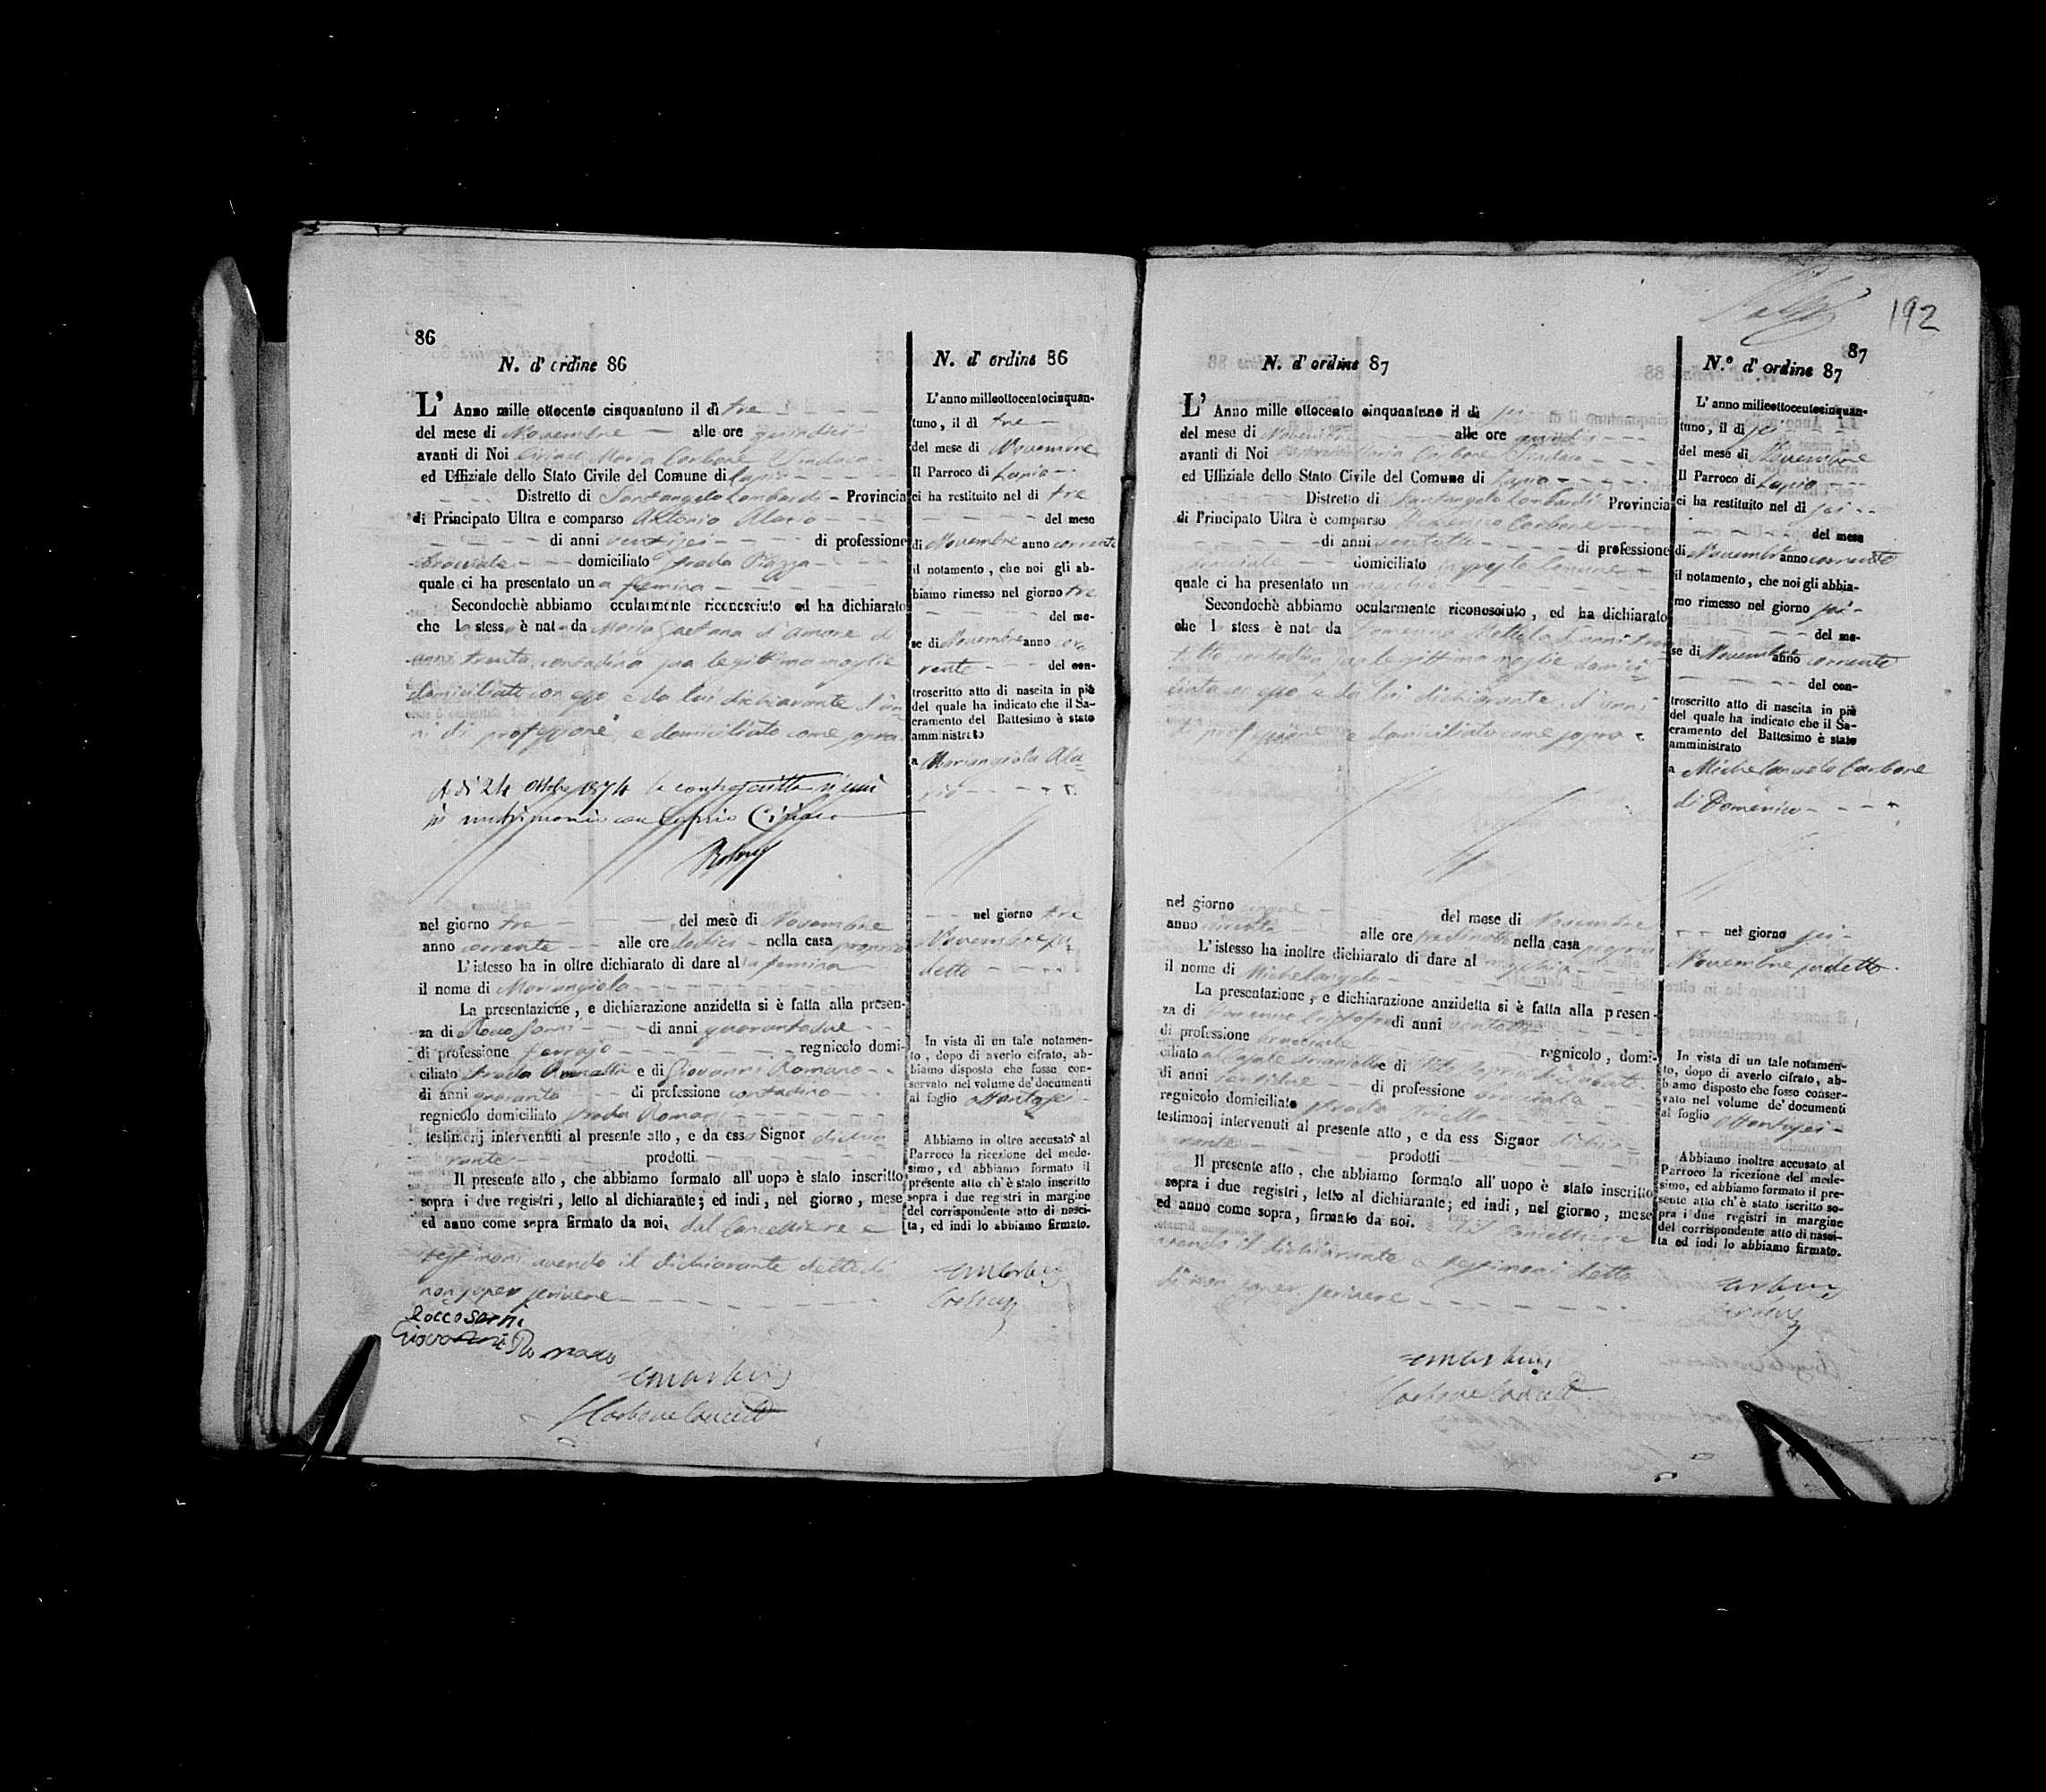 86
N. d' ordine 86
L' Anno mille ottocento cinquantuno il dì tre
del mese di Novembre alle ore quindici
avanti di Noi Maria Carbone Sindaco
ed Uffiziale dello Stato Civile del Comune di Lapio
Distretto di Santangelo Lombardi - Provincia
di Principato Ultra e comparso Antonio
di anni ventisei di professione
bracciale domiciliato strada Piazza
quale ci ha presentato una femina
Secondochè abbiamo ocularmente riconosciuto ed ha dichiarato
che la stessa è nata da Maria Gaetana d'Amore di
anni trenta, contadina sua legittima moglie
domiciliata con esso e da lui dichiarante d'an-
ni di professione, e domiciliato come sopra
A dì 24 1874 la controscritta si unì
in matrimonio con Ciriaco
nel giorno tre del mese di Novembre
anno corrente alle ore dodici nella casa propria
L'istesso ha in oltre dichiarato di dare alla femina
il nome di Mariangiola
La presentazione, e dichiarazione anzidetta si è fatta alla presen-
za di Rocco di anni quarantadue
di professione ferrajo regnicolo domi-
ciliato strada e di Giovanni Romano
di anni quaranta di professione contadino
regnicolo domiciliato strada Romani
testimonj intervenuti al presente atto, e da esso Signor dichia
rante prodotti
Il presente atto, che abbiamo formato all' uopo è stato inscritto
sopra i due registri, letto al dichiarante; ed indi, nel giorno, mese
ed anno come sopra firmato da noi, dal Cancelliere e
testimoni avendo il dichiarante detto di
non saper scrivere
Giovanni Romano
Carbone
N. d' ordine 86
L' anno milleottocentocinquan-
tuno, il dì tre
del mese di Novembre
Il Parroco di Lapio
ci ha restituito nel di tre
del mese
di Novembre anno corrente
il notamento, che noi gli ab-
biamo rimesso nel giorno tre
del me-
se di Novembre anno cor
rente del con-
troscritto atto di nascita in piè
del quale ha indicato che il Sa-
cramento del Battesimo è stato
amministrato
a Mariangiola
nel giorno tre
Novembre su
detto
In vista di un tale notamen-
to, dopo di averlo cifrato, ab-
biamo disposto che fosse con-
servato nel volume de' documenti
al foglio ottantasei
Abbiamo in oltre accusato al
Parroco la ricezione del mede-
simo, ed abbiamo formato il
presente atto ch' è stato inscritto
sopra i due registri in margine
del corrispondente atto di nasci-
ta, ed indi lo abbiamo firmato.
192
87
N. d' ordine 87
L' Anno mille ottocento cinquantuno il dì sei
del mese di Novembre alle ore quindici
avanti di Noi Maria Carbone Sindaco
ed Uffiziale dello Stato Civile del Comune di Lapio
Distretto di Santangelo Lombardi Provincia
di Principato Ultra è comparso Domenico Carbone
di anni ventotto di professione
bracciale domiciliato in questo Comune
quale ci ha presentato un maschio
Secondochè abbiamo ocularmente riconosciuto, ed ha dichiarato
che l stess è nat da
contadina sua legittima moglie domici
liata con esso e da lui dichiarante, d'anni
di professione e domiciliato come sopra
nel giorno del mese di Novembre
anno corrente alle ore nella casa propria
L'istesso ha inoltre dichiarato di dare al maschio
il nome di Michelangelo
La presentazione, e dichiarazione anzidetta si è fatta alla presen-
za di di anni
di professione bracciale regnicolo, domi-
ciliato e di
di anni ventidue di professione bracciale
regnicolo domiciliato strada
testimonj intervenuti al presente atto, e da ess Signor dichia
rante prodotti
Il presente atto, che abbiamo formato all' uopo è stato inscritto
sopra i due registri, letto al dichiarante; ed indi, nel giorno, mese
ed anno come sopra, firmato da noi. dal Cancelliere
avendo il dichiarante e testimoni detto
di non saper scrivere
Carbone
N.º d' ordine 87
L' anno milleottocentocinquan-
tuno, il dì sei
del mese di Novembre
Il Parroco di Lapio
ci ha restituito nel dì sei
del mese
di Novembre anno corrente
il notamento, che noi gli abbia-
mo rimesso nel giorno sei
del me-
se di Novembre anno corrente
del con-
troscritto atto di nascita in piè
del quale ha indicato che il Sa-
cramento del Battesimo è stato
amministrato
a Michelangelo Carbone
di Domenico
nel giorno sei
Novembre sudetto
In vista di un tale notamen-
to, dopo di averlo cifrato, ab-
biamo disposto che fosse conser-
vato nel volume de' documenti
al foglio ottantasei
Abbiamo inoltre accusato al
Parroco la ricezione del mede-
simo, ed abbiamo formato il pre-
sente atto ch' è stato iscritto so-
pra i due registri in margine
del corrispondente atto di nasci-
ta ed indi lo abbiamo firmato.